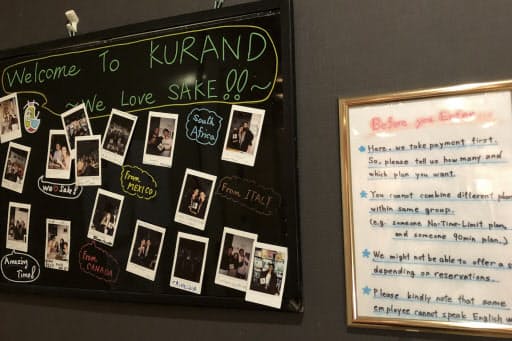 Welcome To KURAND
~We Love SAKE!!~
South Africa!
We Sake!
from MEXICO!
From ITALY
from CANADA
Amazing Time!
Before you Enter
Here, we take payment first.
So, please tell us how many and
which plan you want.
You cannot combine different
within same group.
(e.g. someone No-Time-Limit plan,
and someone 90min plan..)
We might not be able to offer a
depending on reservations.
Please kindly note that some
employee cannot speak English